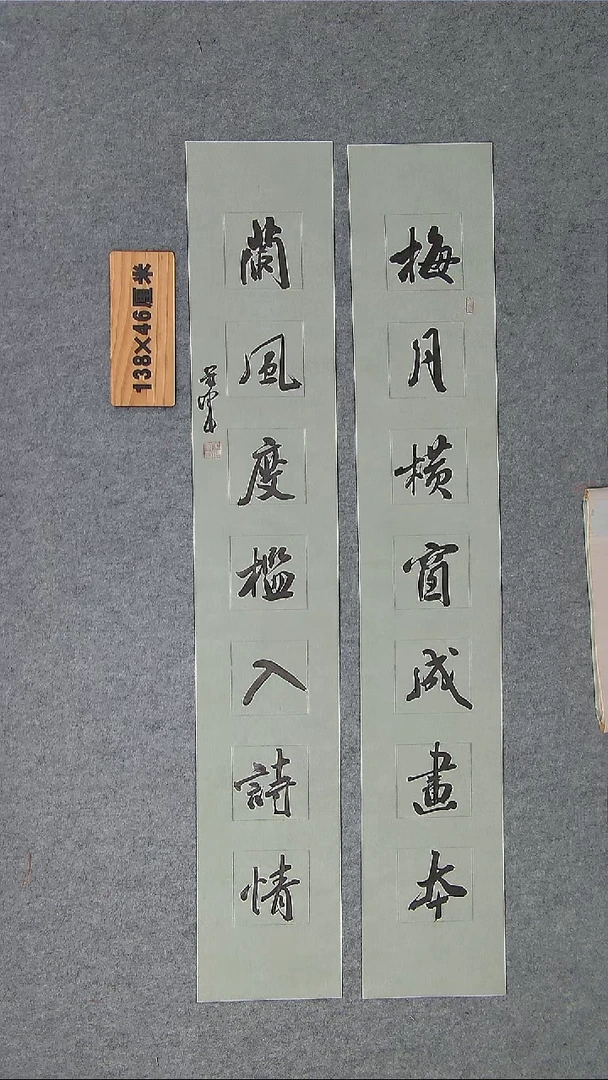 梅月橫窗成畫本
蘭風度檻入詩情
138×46厘米